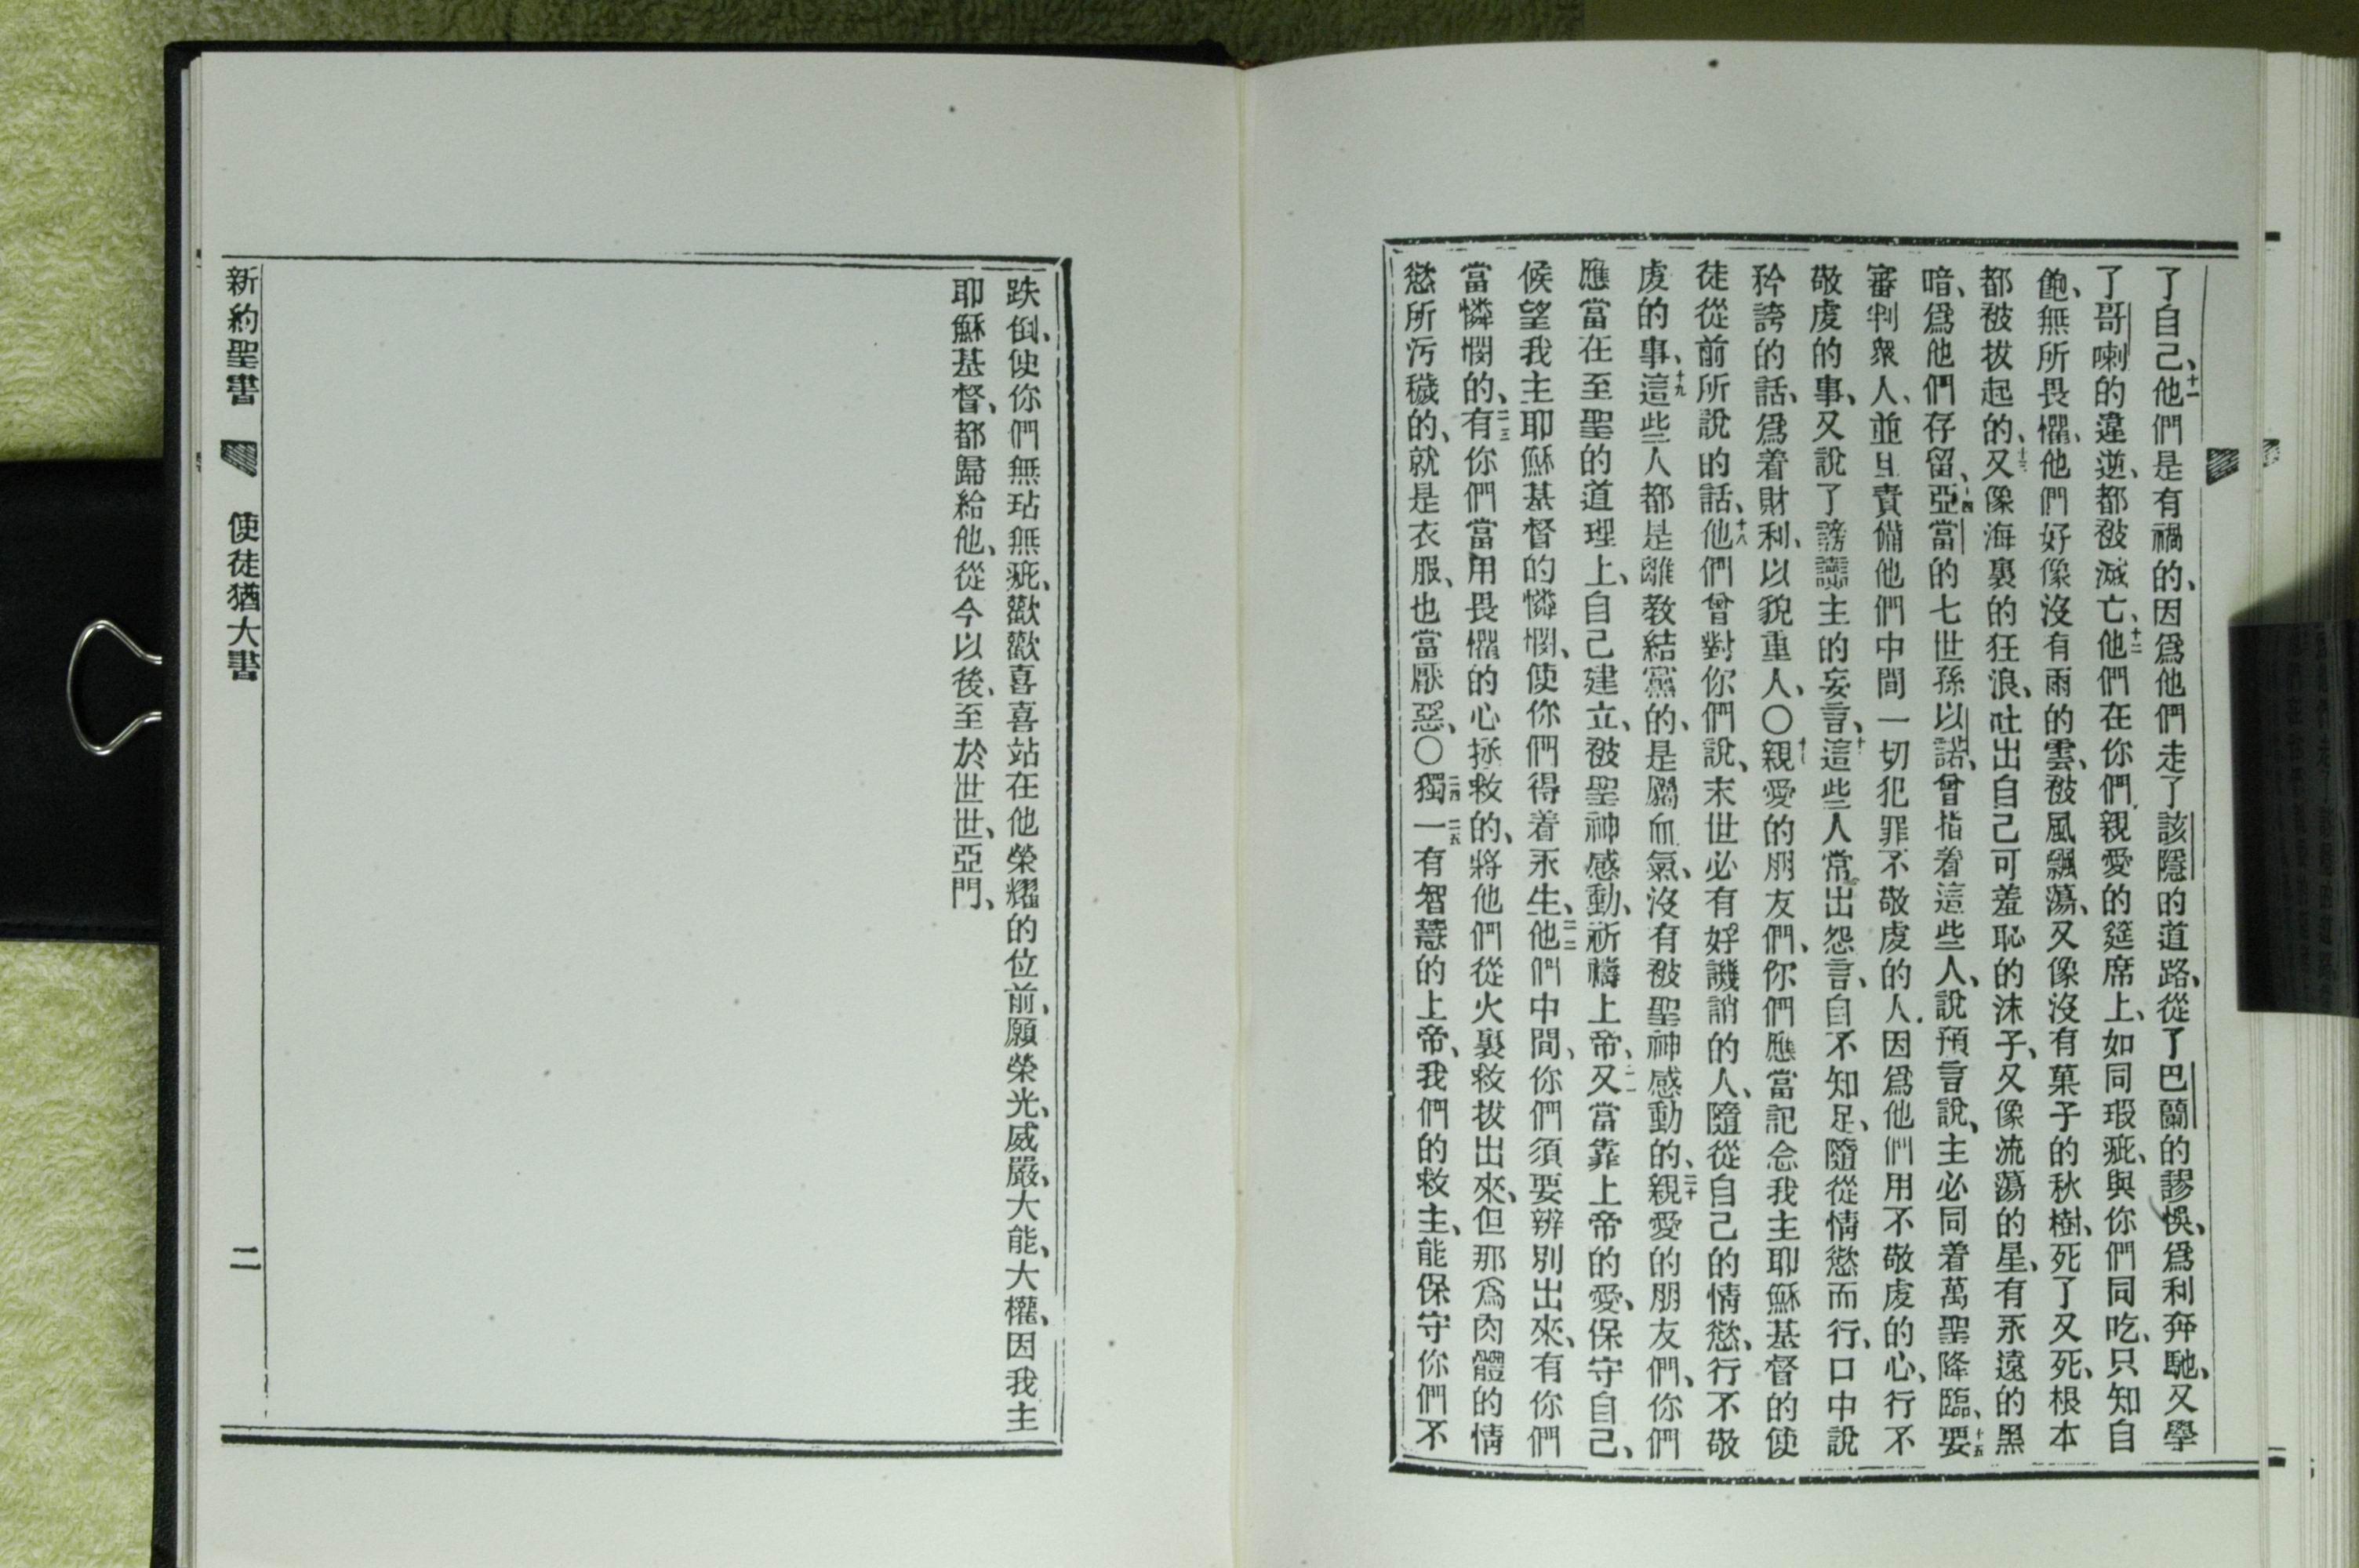 了自己、十一他們是有禍的、因爲他們走了該隱的道路、從了巴蘭的謬悞、爲利奔馳、又學
了哥喇的違逆、都被滅亡、十二他們在你們親愛的筵席上、如同瑕疵、與你們同吃、只知自
飽、無所畏懼、他們好像沒有雨的雲、被風飄蕩、又像沒有菓子的秋樹、死了又死、根本
都被拔起的、十三又像海裏的狂浪、吐出自己可羞恥的沫子、又像流蕩的星、有永遠的黑
暗、爲他們存留、十四亞當的七世孫以諾、曾指着這些人、說預言說、主必同着萬聖降臨、十五要
審判衆人、並且責備他們中間一切犯罪不敬虔的人、因爲他們用不敬虔的心、行不
敬虔的事、又說了謗讟主的妄言、這些人常出怨言、自不知足、隨從情慾而行、口中說
矜誇的話、爲着財利、以貌重人、〇親愛的朋友們、你們應當記念我主耶穌基督的使
徒從前所說的話、十八他們曾對你們說、末世必有好譏誚的人、隨從自己的情慾、行不敬
虔的事、十九這些人都是離教結黨的、是屬血氣、沒有被聖神感動的、二十親愛的朋友們、你們
應當在至聖的道理上、自己建立、被聖神感動、祈禱上帝、二一又當靠上帝的愛、保守自己、
候望我主耶穌基督的憐憫、使你們得着永生、二二他們中間、你們須要辨別出來、有你們
當憐憫的、二三有你們當用畏懼的心拯救的、將他們從火裏救拔出來、但那爲肉體的情
慾所污穢的、就是衣服、也當厭惡、〇二四獨二五一有智慧的上帝、我們的救主、能保守你們不
跌倒、使你們無玷無疵、歡歡喜喜站在他榮耀的位前、願榮光、威嚴、大能、大權、因我主
耶穌基督、都歸給他、從今以後、至於世世、亞門、
新約聖書 使徒猶大書 二